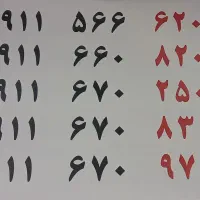 ۹۱۱ ۵۶۶ ۶۲۰
۹۱۱ ۶۶۰ ۸۲۰
۹۱۱ ۶۷۰ ۲۵۰
۹۱۱ ۶۷۰ ۸۳
۱۱ ۶۷۰ ۹۷